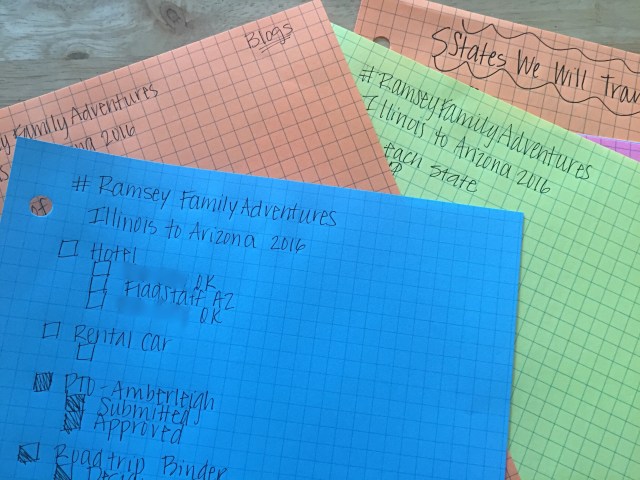 Blogs
Family Adventures
2016
States We Will
#RamseyFamilyAdventures
Illinois to Arizona 2016
Each State
# Ramsey Family Adventures
Illinois to Arizona 2016
Hotel
OK
Flagstaff AZ
OK
Rental Car
PTO - Amberleigh
Submitted
Approved
Roadtrip Binder